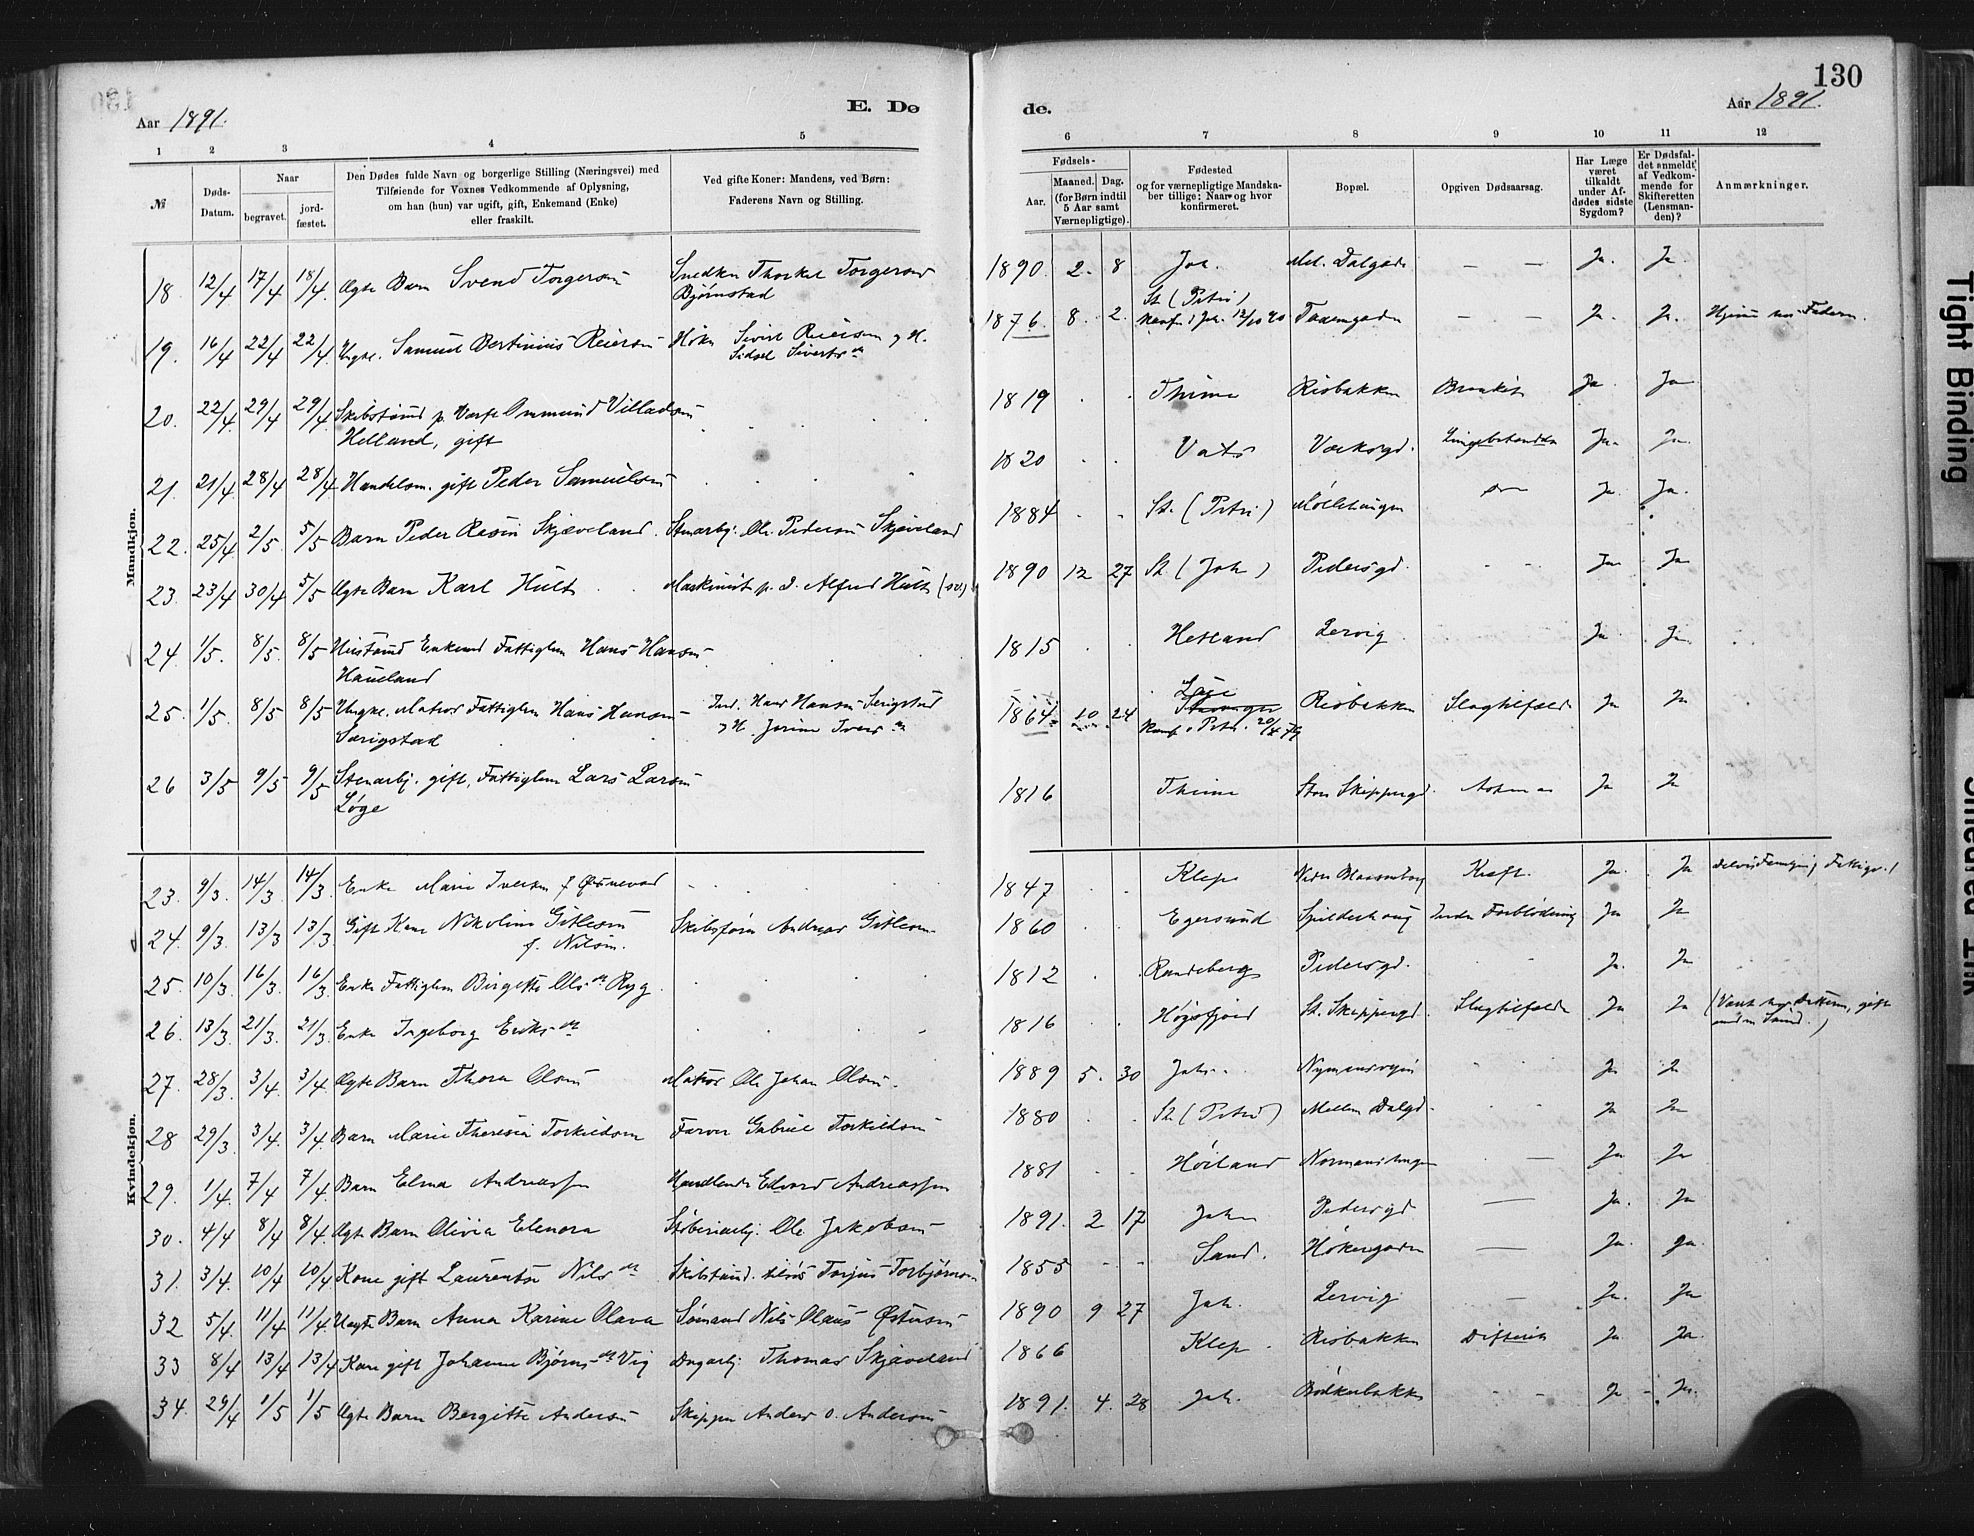 130
Aar 1891. E. Dø de. Aar 1891.
1 2 3 4 5 6 7 8 9 10 11 12
№ Døds-Datum. Naar begravet. jord-fæstet. Den Dødes fulde Navn og borgerlige Stilling (Næringsvei) med Tilføiende for Voxnes Vedkommende af Oplysning, om han (hun) var ugift, gift, Enkemand (Enke) eller fraskilt. Ved gifte Koner: Mandens, ved Børn: Faderens Navn og Stilling. Fødsels- Aar. Maaned. Dag. (for Børn indtil 5 Aar samt Værnepligtige). Fødested og for værnepligtige Mandskaber tillige: Naar og hvor konfirmeret. Bopæl. Opgiven Dødsaarsag. Har Læge været tilkaldt under Afdødes sidste Sygdom? Er Dødsfaldet anmeldt af Vedkommende for Skifteretten (Lensmanden)? Anmærkninger.
Mandkjøn.
18. 12/4 17/4 18/4. Ægte Barn Svend Torgersen Snedker Thorkel Torgersen Bjørnstad 1890. 2. 8 Joh. Mel. Dalgade — — Ja. Ja.
19. 16/4 22/4 22/4. Ungk. Samuel Bertinius Reiersen Høker Sivert Reiersen og H. Sidsel Sivertsdr 1876. 8. 2. St. (Petri) Konf. i Joh. 12/10 90 — — Ja. Ja. Hjemme hos Faderen.
20. 22/4. 29/4 29/4. Skibstømd p. Værft Ommund Villadsen Helland, gift 1819 Thime Risbakken Ja. Ja
21. 21/4 28/4 28/4 Handelsm. gift Peder Samuelsen 1820 Vats Værksgd. Lungebetændelse Ja. Ja.
22. 25/4 2/5. 5/5 Barn Peder Skjæveland. Stenarbj. Ole Pedersen Skjæveland 1884 St. (Petri) Ja. Ja.
23. 23/4 30/4 5/5 Ægte Barn Karl Hult Maskinist p. d. Alfred Hult 1890 12 27 St. (Joh) Pedersgd. Ja Ja
24. 1/5. 8/5. 8/5 Enkemd Fattiglem Hans Hansen Haueland 1815 Hetland Lervig Ja Ja
25. 1/5. 8/5 8/5 Ungk. Matros Fattiglem Hans Hansen Særigstad Ind. Hans Hansen Serigstad og H. Jorine Iversdr 1864. 10 24 Konf. i Petri. 79 Risbakken Slagtilfælde Ja Ja
26 3/5 9/5 9/5 Stenarbj. gift, Fattiglem Lars Larsen Løge 1816 Thime Store Skippergd. Ja Ja
Kvindekjøn.
23. 9/3. 14/3 14/3 Enke Marie Iversen f. 1847 Klep Kræft. Ja. Ja
24. 9/3. 13/3 13/3 Gift Kone Nikoline Gitlesen f. Nilsen. Skibsfører Andreas Gitlesen 1860 Egersund Spilderhaug Indre Forblødning Ja Ja
25. 10/3. 16/3. 16/3. Enke Fattiglem Birgitte Olsdr Ryg. 1812 Randeberg Pedersgd. Ja. Ja
26. 13/3. 21/3. 21/3. Enke Ingeborg Eriksdr 1816 Høgsfjord St. Skippergd. Slagtilfælde Ja Ja
27. 28/3 3/4. 3/4. Ægte Barn Thora Olsen Matros Ole Johan Olsen. 1889 5. 30 Joh. Ja Ja
28 29/3 3/4 3/4. Barn Marie Theresia Torkildsen Farver Gabriel Torkildsen 1880 St. (Petri) Mellem Dalgd. Ja Ja
29. 1/4. 7/4 7/4. Barn Elma Andreassen Handlende Edvard Andreassen 1881 Høiland Ja Ja
30. 4/4 8/4 8/4. Ægte Barn Olivia Elenora Støberiarbj. Ole Jakobsen 1891. 2 17 Joh Pedersgd — Ja. Ja
31. 3/4. 10/4 10/4. Kone gift Laurentse Nilsdr Skibstømd. Torjus Torbjørnsen 1855 Sand. Høkergaden — Ja. Ja.
32 5/4. 11/4 11/4. Uægte Barn Anna Karine Olava Sømand Nils Olaus Østensen 1890 9 27 Joh. Lervig — Ja. Ja
33 8/4 13/4 13/4 Kone gift Johanne Bjørnsdr Vig Dagarbj. Thomas Skjæveland 1866 Klep. Risbakken Difterit Ja Ja.
34. 29/4 1/5 1/5 Ægte Barn Bergitte Andersen Skipper Anders O. Andersen 1891. 4. 28 Joh. Bødkerbakken — — Ja Ja.
Tight Binding
Smeared Ink